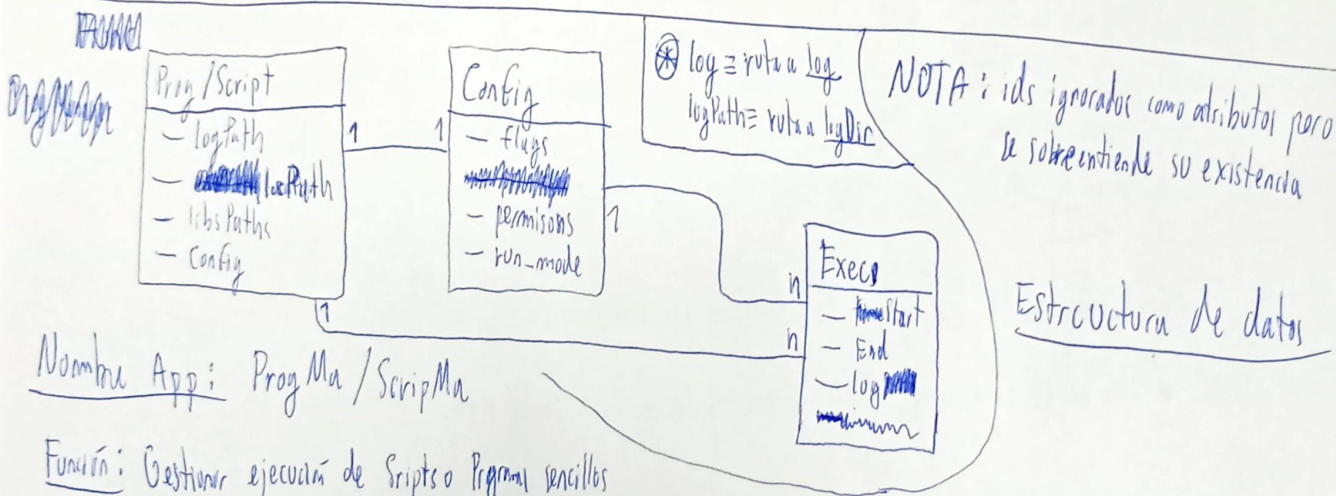 Prog/Script
- logPath
- libsPaths
- Config
1
1
Config
- flags
- permisons
- run_mode
1
* log ≡ ruta a log
logPath ≡ ruta a logDir
NOTA: ids ignorados como atributos pero
se sobreentiende su existencia
Exec
- Start
- End
- log
n
n
1
Estrcuctura de datos
Nombre App: ProgMa / ScripMa
Función: Gestionar ejecución de Sripts o Prgramas sencillos